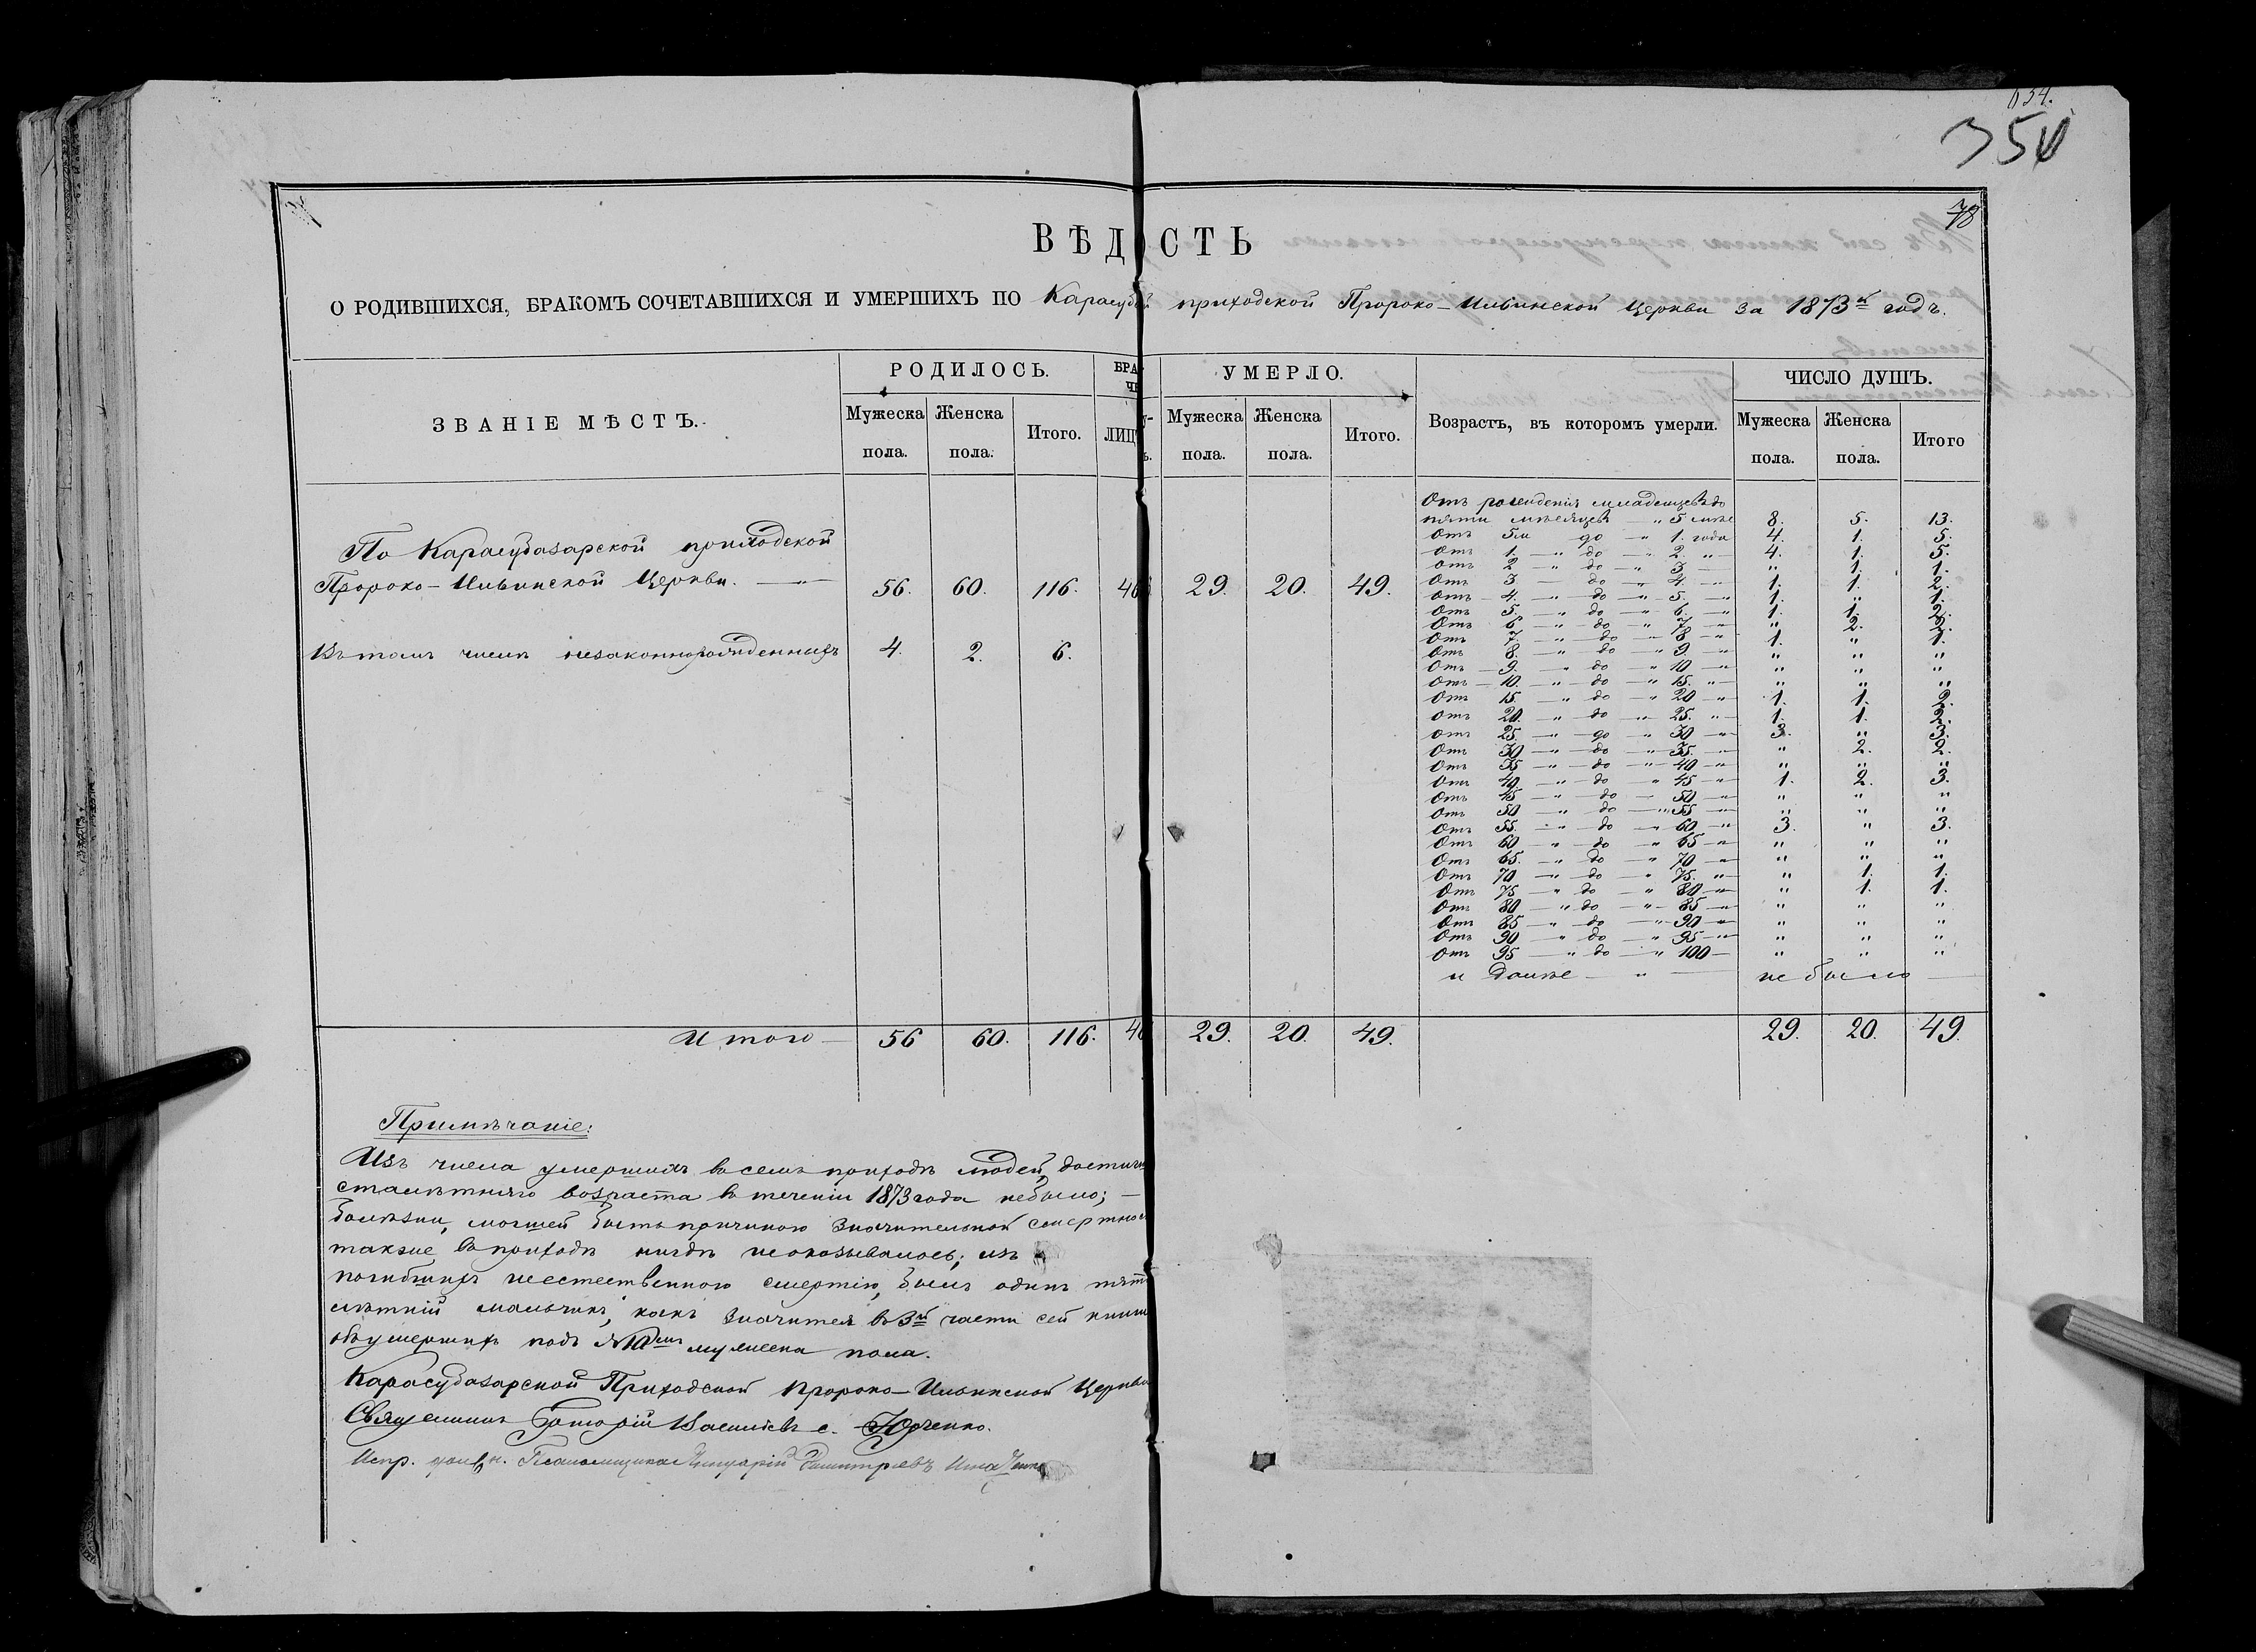 634.
350
78
ВѢДОСТЬ
О РОДИВШИХСЯ, БРАКОМЪ СОЧЕТАВШИХСЯ И УМЕРШИХЪ ПО Карасуб приходской Пророко-Ильинской Церкви за 1873й годъ.
ЗВАНІЕ МѢСТЪ.
РОДИЛОСЬ.
Мужеска пола.
Женска пола.
Итого.
БРА
ЛИЦ
УМЕРЛО.
Мужеска пола.
Женска пола.
Итого.
Возрастъ, въ которомъ умерли.
ЧИСЛО ДУШЪ.
Мужеска пола.
Женска пола.
Итого
По Карасубазарской приходской
Пророко-Ильинской Церкви. 56. 60. 116. 46 29. 20. 49.
Въ томъ числѣ незаконнорожденныхъ 4. 2. 6.
Отъ рожденія младенцевъ до
пяти мѣсяцевъ — " 5 мѣс 8. 5. 13.
Отъ 5м до — " 1. года 4. 1. 5.
Отъ 1. — " до — " 2. " — 4. 1. 5.
Отъ 2 — " до — " 3. — " 1. 1.
Отъ 3 — до — " 4. — " 1. 1. 2.
Отъ 4. — " до — " 5. — " 1. " 1.
Отъ 5. — " до — " 6. — " 1. 1. 2.
Отъ 6 — " до — " 7 — " " 2. 2.
Отъ 7. — " до — " 8 — " 1. " 1.
Отъ 8. — " до — " 9. — " " " "
Отъ 9. — " до — " 10 — " " " "
Отъ 10. — " до — " 15. " — " " "
Отъ 15. — " до — " 20 — " 1. 1. 2.
Отъ 20. — " до — " 25. " — 1. 1. 2.
Отъ 25. — " до — " 30 — " 3. " 3.
Отъ 30 — " до — " 35. — " " 2. 2.
Отъ 35 — " до — " 40 — " " " "
Отъ 40 — " до — " 45 — " 1. 2. 3.
Отъ 45 — " до — 50 — " " " "
Отъ 50 — " до — " 55 — " " " "
Отъ 55. — " до — " 60 — " 3. " 3.
Отъ 60 — " до — " 65 — " " " "
Отъ 65. — " до — " 70 — " " " "
Отъ 70 — " до — " 75. — " " 1. 1.
Отъ 75 — " до — " 80 — " " 1. 1.
Отъ 80 — " до — " 85 — " " " "
Отъ 85 — " до — " 90 — " " " "
Отъ 90 — " до — " 95 — " " " "
Отъ 95 — " до — " 100 — " " "
и далѣе — " — не было
Итого — 56 60. 116. 46 29. 20. 49. 29. 20. 49.
Примѣчаніе:
Изъ числа умершихъ въ семъ приходѣ людей, достигш
столѣтняго возраста въ теченіи 1873 года небыло; —
болѣзни, могшей быть причиною значительной смертнос
также въ приходѣ нигдѣ неоказывалось; изъ
погибшихъ неестественною смертію, былъ одинъ пяти
лѣтній мальчикъ, какъ значится въ 3й части сей книги
объ умершихъ подъ №10емъ мужеска пола.
Карасубазарской Приходской Пророко-Ильинской Церкви
Священникъ Григорій Васильевъ с. Юрченко.
Испр. должн. Псаломщика Димитріевъ